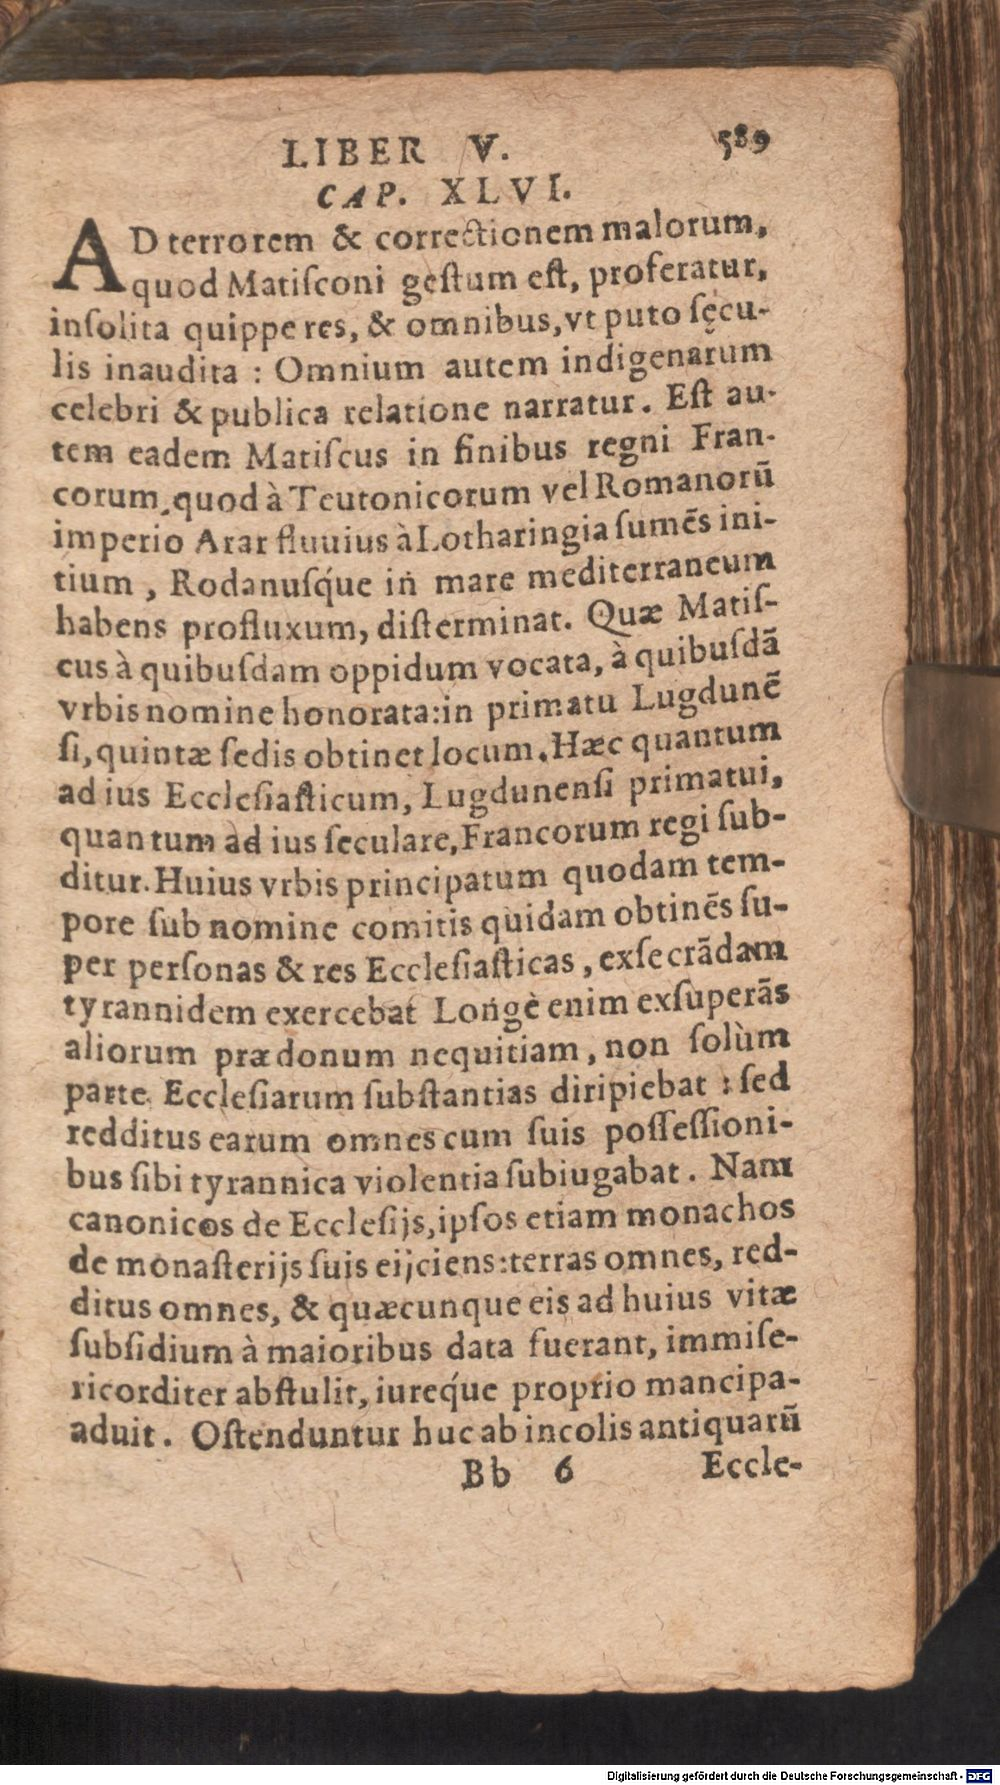 LIBER V. 589
CAP. XLVI.
AD terrorem & correctionem malorum,
quod Matiſconi geſtum eſt, proferatur,
inſolita quippe res, & omnibus, vt puto ſęcu-
lis inaudita : Omnium autem indigenarum
celebri & publica relatione narratur. Eſt au-
tem eadem Matiſcus in finibus regni Fran-
corum, quod à Teutonicorum vel Romanorũ
imperio Arar fluuius à Lotharingia ſumẽs ini-
tium, Rodanuſq́ue in mare mediterraneum
habens profluxum, diſterminat. Quæ Matiſ-
cus à quibuſdam oppidum vocata, à quibuſdã
vrbis nomine honorata: in primatu Lugdunẽ
ſi, quintæ ſedis obtinet locum. Hæc quantum
ad ius Eccleſiaſticum, Lugdunenſi primatui,
quantum ad ius ſeculare, Francorum regi ſub-
ditur. Huius vrbis principatum quodam tem-
pore ſub nomine comitis quidam obtinẽs ſu-
per perſonas & res Eccleſiaſticas, exſecrãdam
tyrannidem exercebat Longè enim exſuperãs
aliorum prædonum nequitiam, non ſolùm
parte Eccleſiarum ſubſtantias diripiebat : ſed
redditus earum omnes cum ſuis poſſeſſioni-
bus ſibi tyrannica violentia ſubiugabat. Nam
canonicos de Eccleſijs, ipſos etiam monachos
de monaſterijs ſuis eijciens: terras omnes, red-
ditus omnes, & quæcunque eis ad huius vitæ
ſubſidium à maioribus data fuerant, immiſe-
ricorditer abſtulit, iureq́ue proprio mancipa-
aduit. Oſtenduntur huc ab incolis antiquarũ
Bb 6 Eccle-
Digitalisierung gefördert durch die Deutsche Forschungsgemeinschaft - DFG